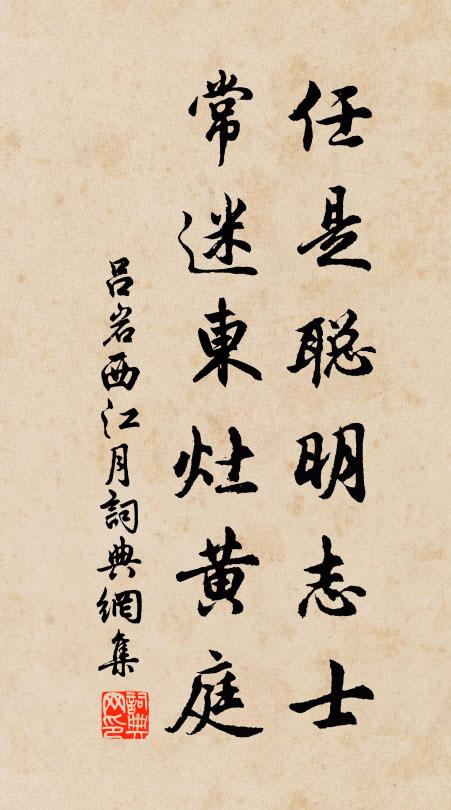 任是聪明志士
常迷東灶黄庭
吕岩西江月詞典網集
詞典网印